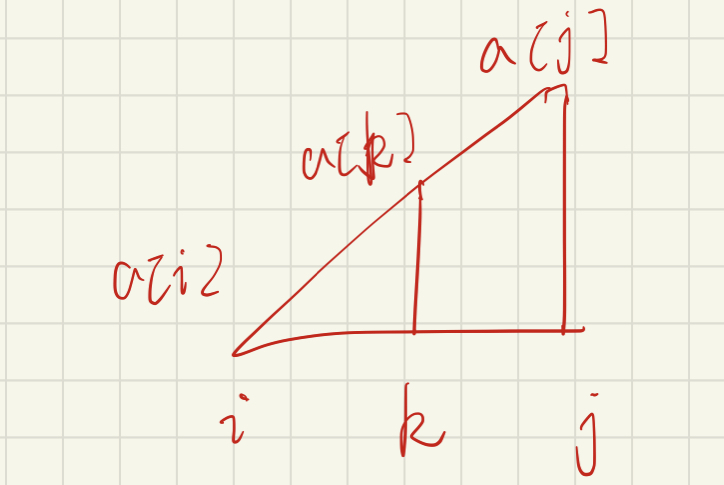 a[j]
a[k]
a[i]
i k j